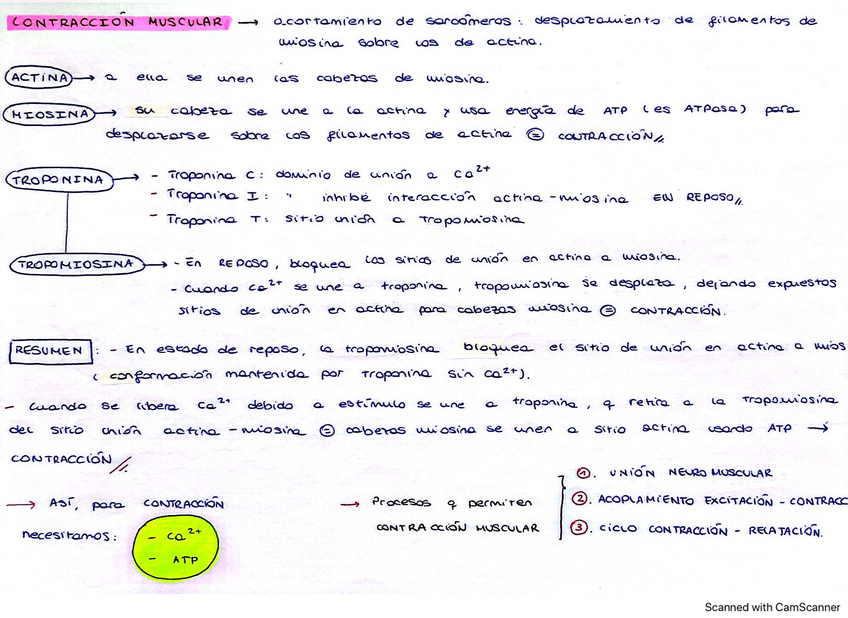 CONTRACCIÓN MUSCULAR → acortamiento de sarcómeros: desplazamiento de filamentos de
miosina sobre los de actina.
ACTINA → a ella se unen las cabezas de miosina.
MIOSINA → su cabeza se une a la actina y usa energía de ATP (es ATPasa) para
desplazarse sobre los filamentos de actina = CONTRACCIÓN
TROPONINA → - Troponina C: dominio de unión a Ca2+
- Troponina I: " inhibe interacción actina-miosina EN REPOSO
- Troponina T: sitio unión a tropomiosina
TROPOMIOSINA → - En REPOSO, bloquea los sitios de unión en actina a miosina.
- Cuando Ca2+ se une a troponina, tropomiosina se desplaza, dejando expuestos
sitios de unión en actina para cabezas miosina = CONTRACCIÓN.
RESUMEN: - En estado de reposo, la tropomiosina bloquea el sitio de unión en actina a mios
(conformación mantenida por troponina sin Ca2+).
- Cuando se libera Ca2+ debido a estímulo se une a troponina, q retira a la tropomiosina
del sitio unión actina-miosina = cabezas miosina se unen a sitio actina usando ATP →
CONTRACCIÓN
→ ASÍ, para CONTRACCIÓN
necesitamos:
- Ca2+
- ATP
→ Procesos q permiten
CONTRACCIÓN MUSCULAR
①. UNIÓN NEUROMUSCULAR
②. ACOPLAMIENTO EXCITACIÓN - CONTRACC
③. CICLO CONTRACCIÓN - RELAJACIÓN.
Scanned with CamScanner